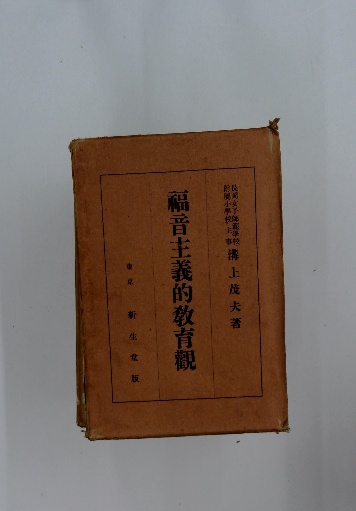 長岡女子師範學校
附屬小學校主事
溝上茂夫著
福音主義的教育觀
東京 新生堂版